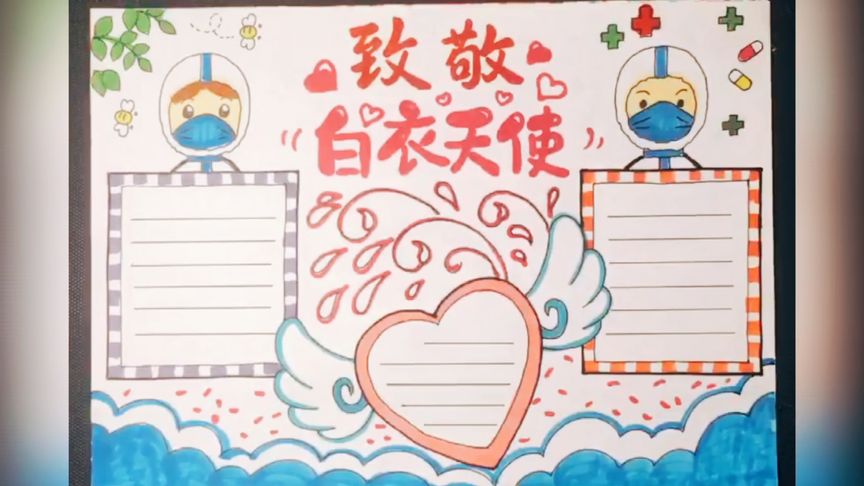 致敬
白衣天使